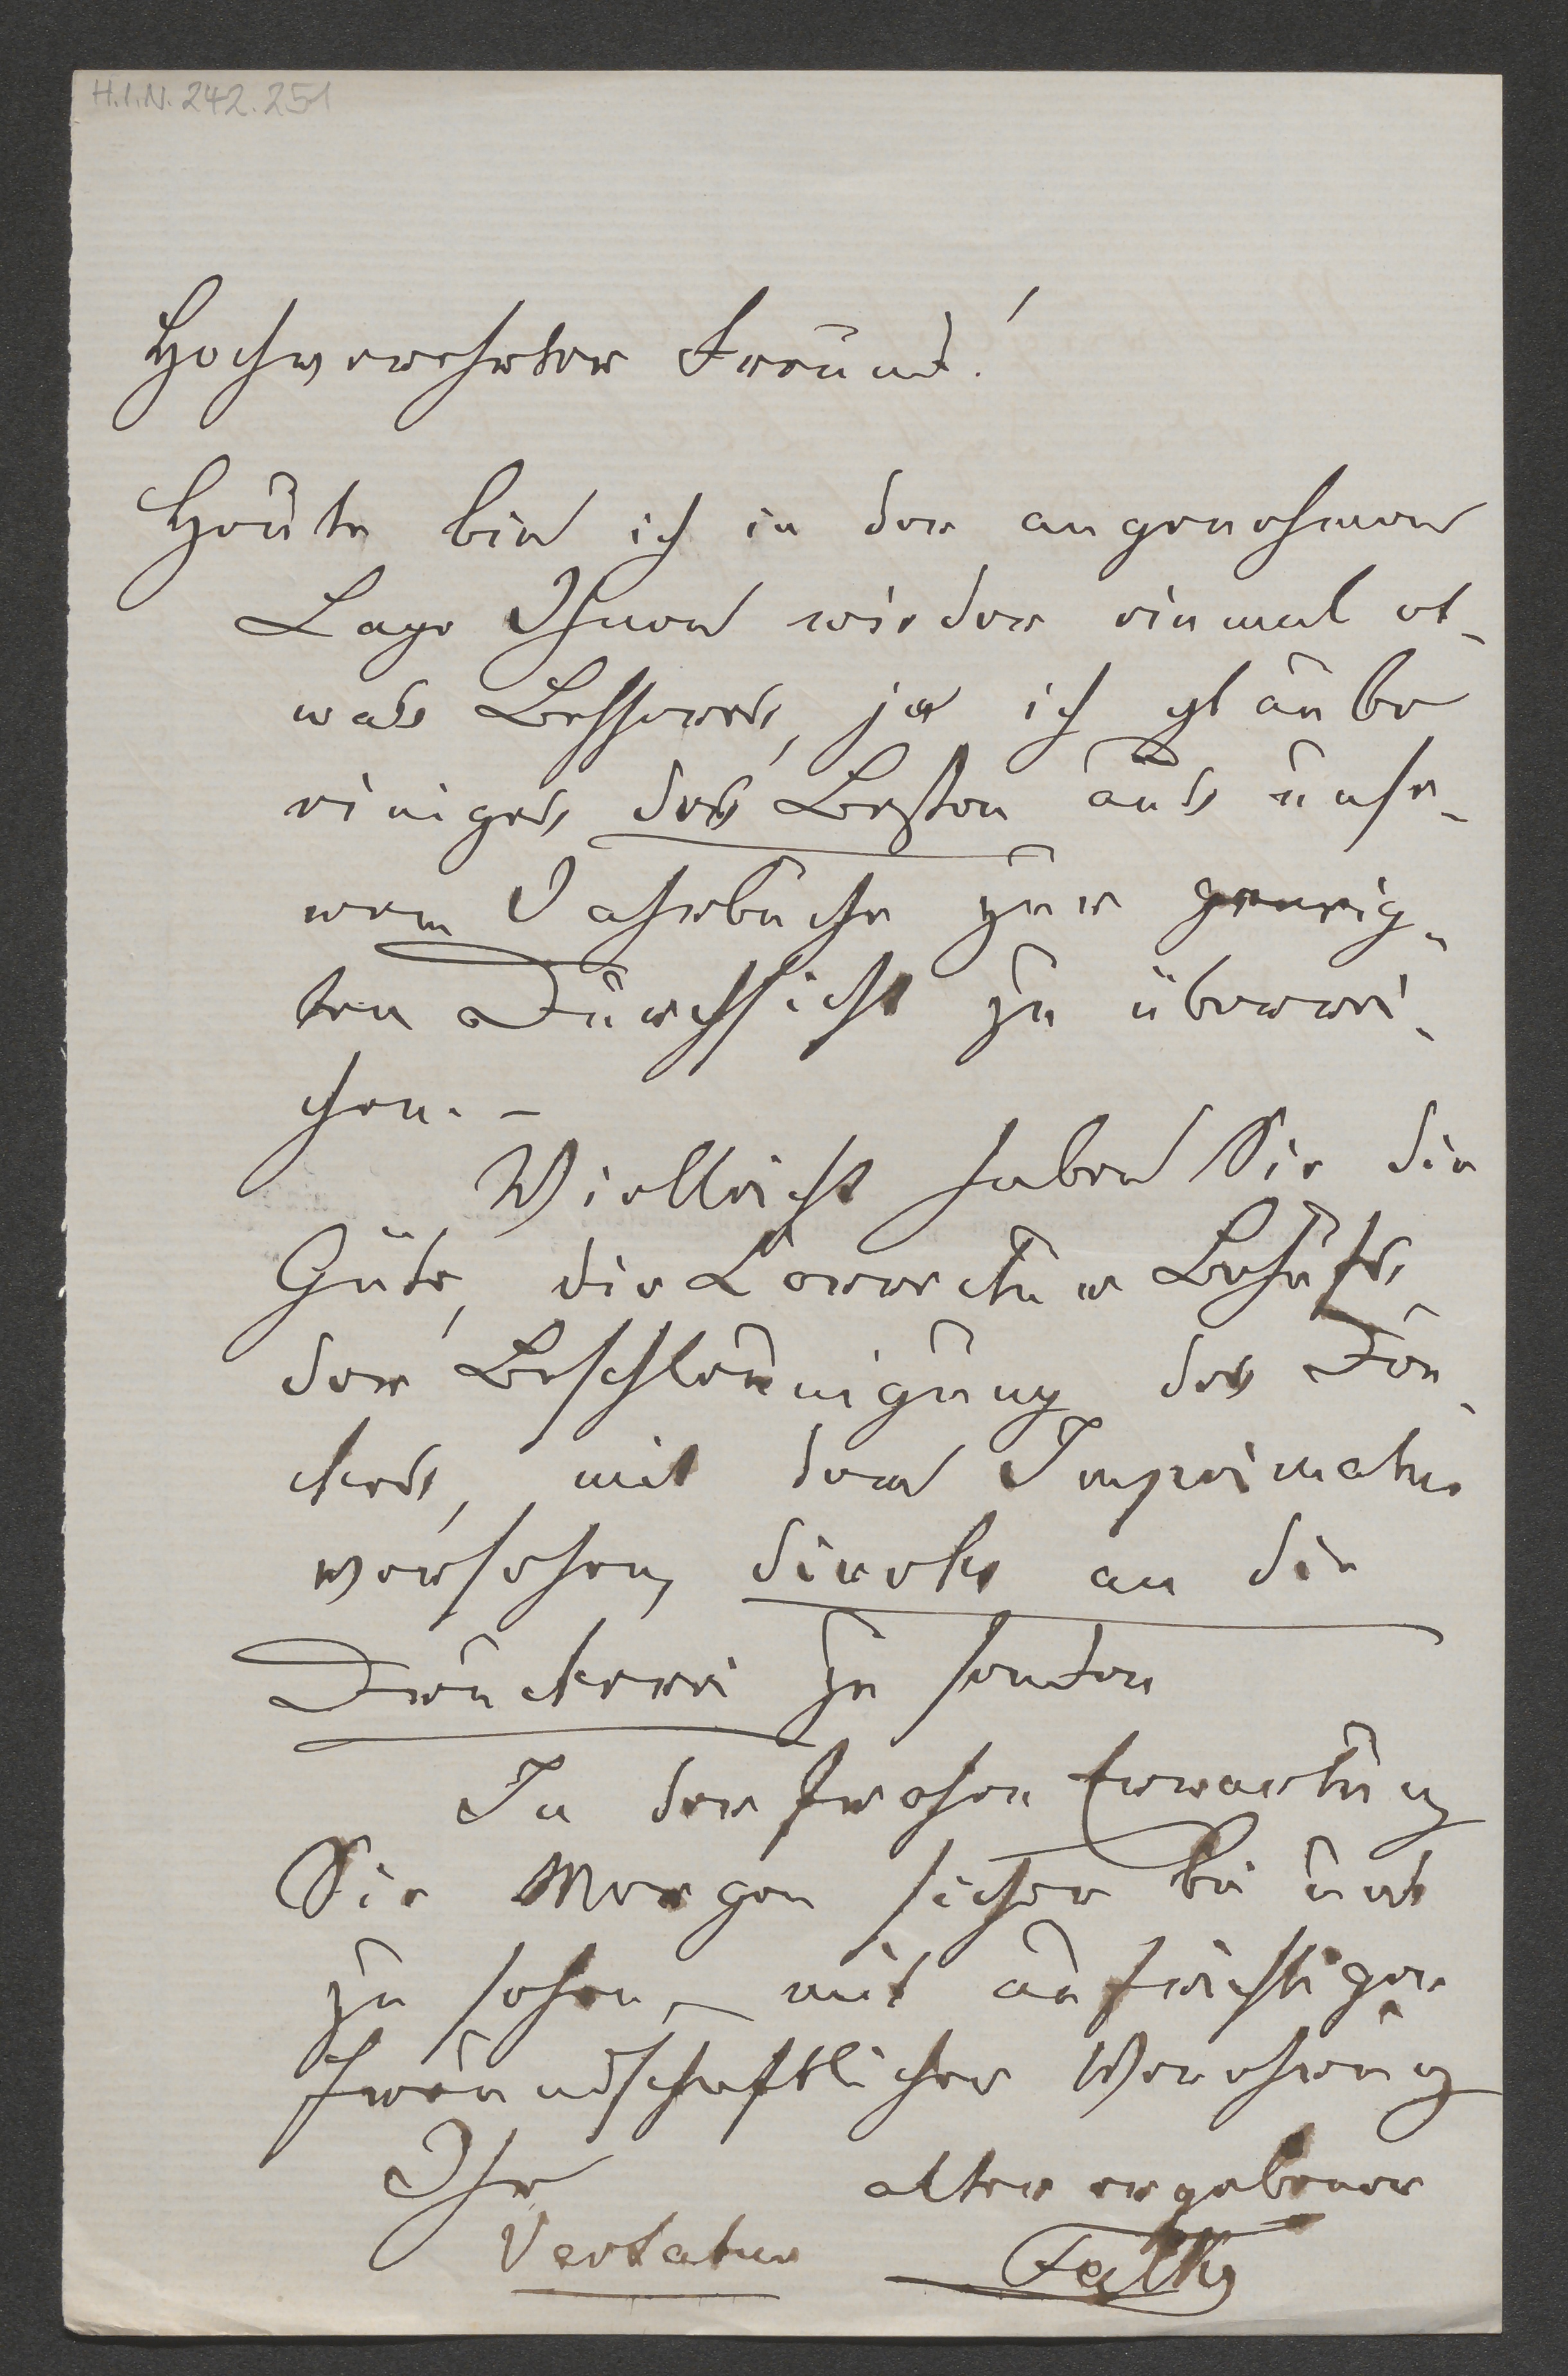 H.I.N. 242.251
Hochverehrter Freund!
Heute bin ich in der angenehmen
Lage Ihnen wieder einmal et-
was Besseres, ja ich glaube
einiges des Besten aus unse-
rem Jahrbuche zur geneig-
ten Durchsicht zu überrei-
chen. –
Vielleicht haben Sie die
Güte, die Correctur Behufs
der Beschleunigung des Dru-
ckes, mit dem Imprimatur
versehen, direkt an die
Druckerei zu senden
In der frohen Erwartung
Sie Morgen sicher bei uns
zu sehen, – mit aufrichtiger
freundschaftlicher Verehrung
Ihr alter ergebener
Vertatur Falke